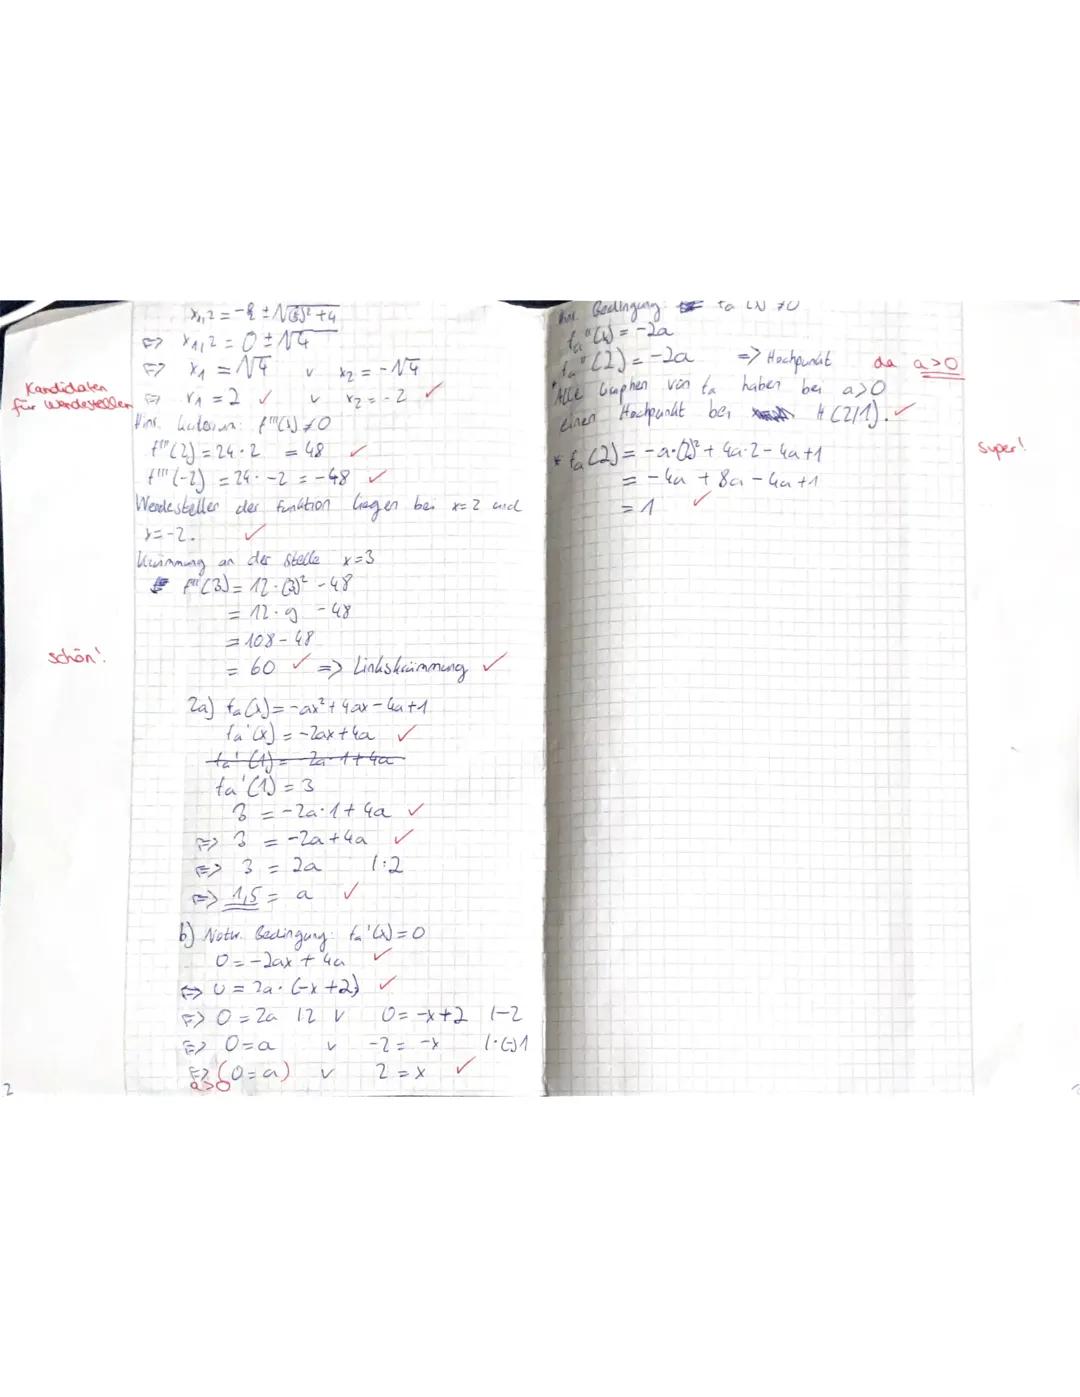 x₁,₂ = - ± √()² + 4
⇔ x₁,₂ = 0 ± √4
⇔ x₁ = √4 v x₂ = -√4
Kandidaten für Wendestellen
⇔ x₁ = 2 ✓ v x₂ = -2 ✓
Hinr. Kriterium: f'''(x) ≠ 0
f'''(2) = 24·2 = 48 ✓
f'''(-2) = 24·-2 = -48 ✓
Wendestellen der Funktion liegen bei x=2 und
x=-2. ✓
Krümmung an der Stelle x=3
f''(3) = 12·(3)² - 48
= 12·9 - 48
= 108 - 48
schön!
= 60 ✓ => Linkskrümmung ✓
2a) fa(x) = -ax² + 4ax - 4a + 1
fa'(x) = -2ax + 4a ✓
fa'(1) = -2a·1 + 4a
fa'(1) = 3
3 = -2a·1 + 4a ✓
⇔ 3 = -2a + 4a ✓
⇔ 3 = 2a |:2
⇔ 1,5 = a ✓
b) Notw. Bedingung: fa'(x) = 0
0 = -2ax + 4a ✓
⇔ 0 = 2a·(-x+2) ✓
⇔ 0 = 2a |:2 v 0 = -x+2 |-2
⇔ 0 = a v -2 = -x |·(-)1
⇔ (0 = a) v 2 = x ✓
a>0
2
Hinr. Bedingung: fa''(x) ≠ 0
fa''(x) = -2a
fa''(2) = -2a => Hochpunkt da a>0
* Alle Graphen von fa haben bei a>0
einen Hochpunkt bei H(2/1). ✓
Super!
* fa(2) = -a·(2)² + 4a·2 - 4a + 1
= -4a + 8a - 4a + 1
= 1 ✓